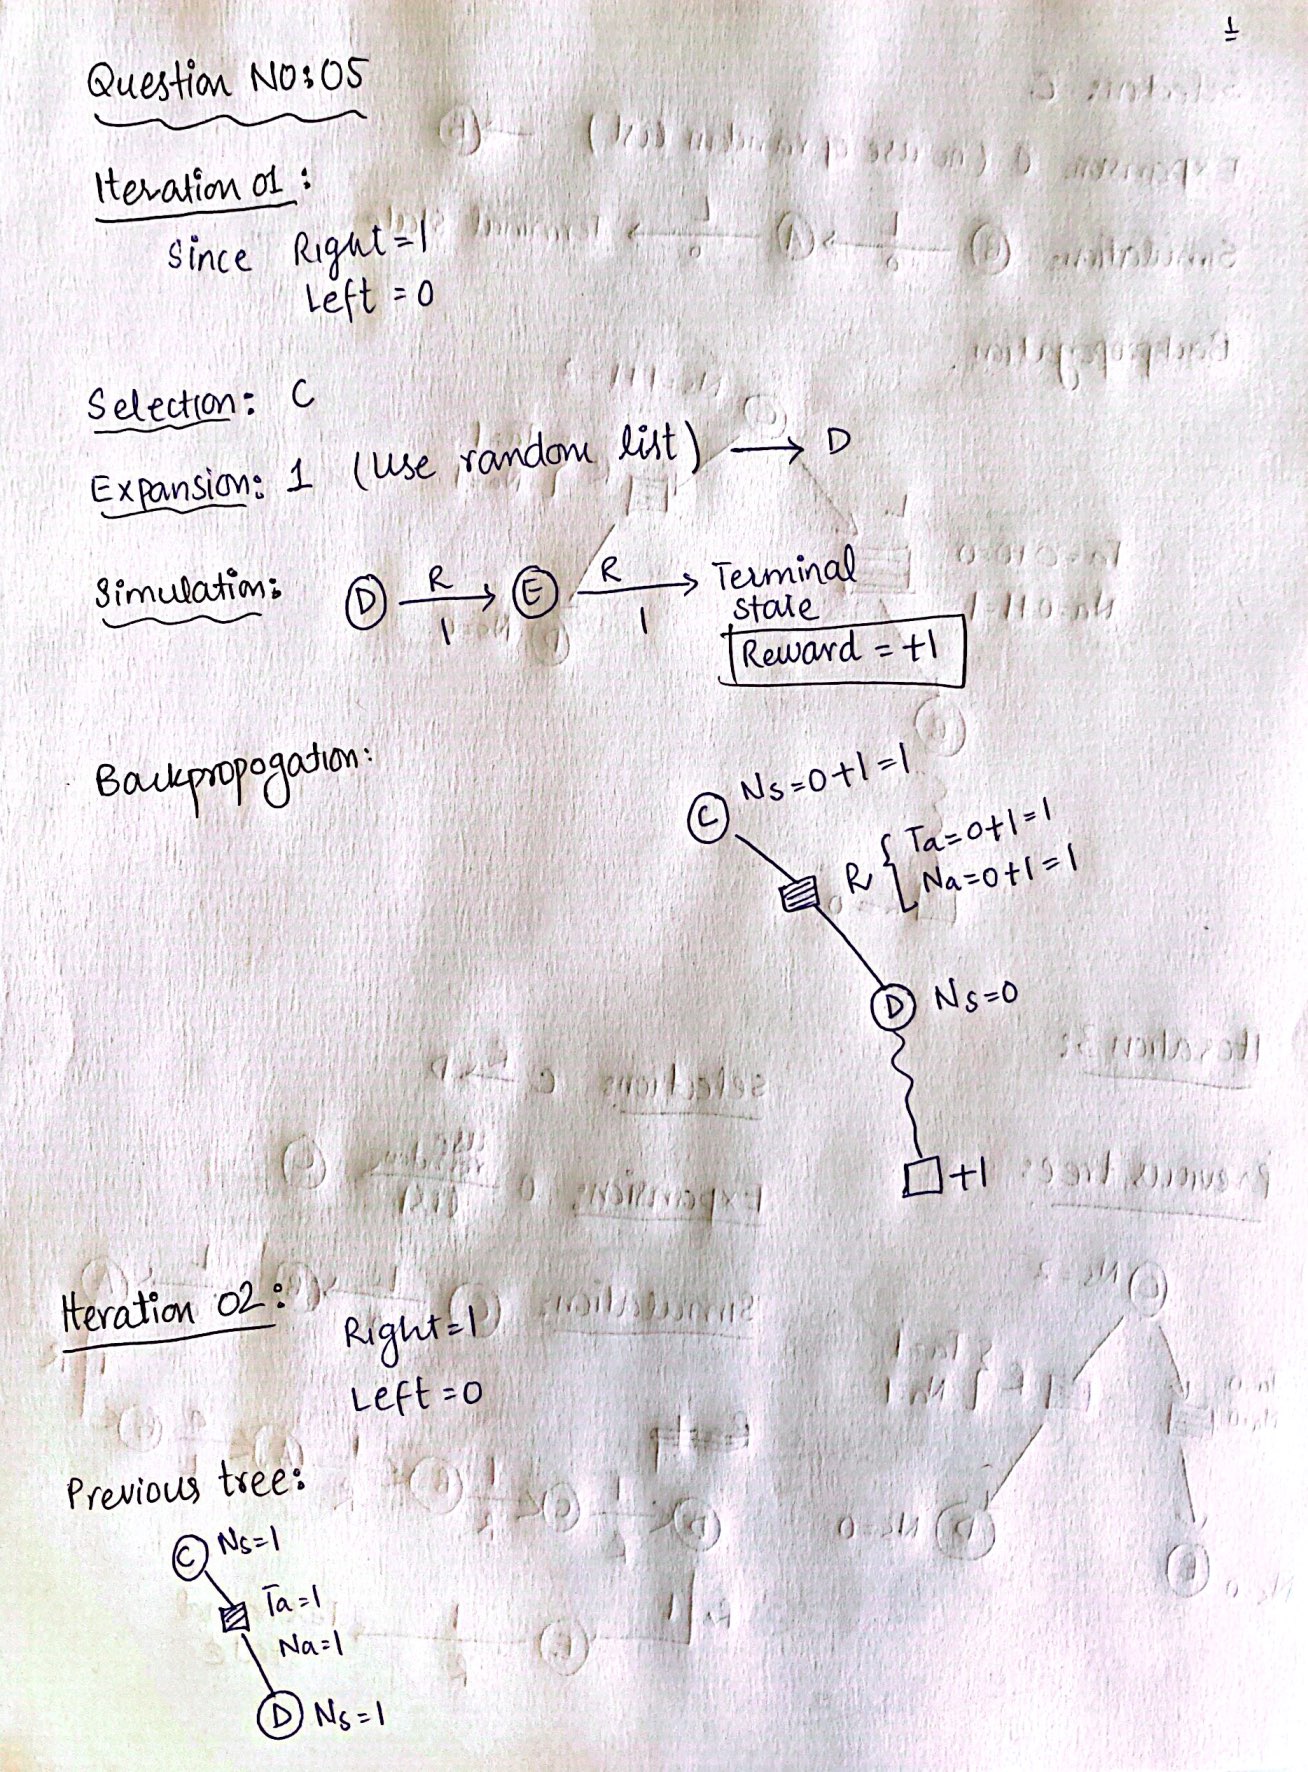 1
Question NO:05
Iteration 01:
Since Right=1
Left = 0
Selection: C
Expansion: 1 (Use random list) → D
Simulation: D R 1 → E R 1 → Terminal
state
Reward = +1
Backpropogation:
C Ns=0+1=1
R { Ta=0+1=1
Na=0+1=1
D Ns=0
+1
Iteration 02:
Right=1
Left=0
Previous tree:
C Ns=1
Ta=1
Na=1
D Ns=1